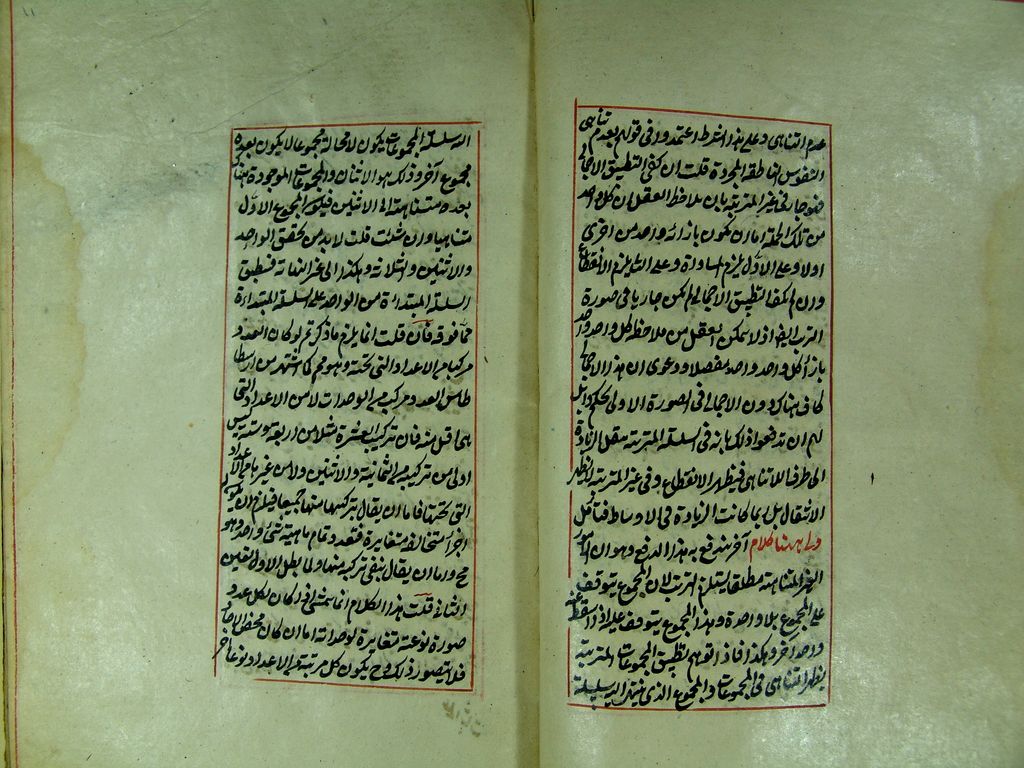 عدم التناهى وعلى هذا الشرط اعتمدوا فى قولهم بعدم تناهى
النفوس الناطقة المجردة قلت ان كفى التطبيق الاجمالى
فهو جار فى غير المترتبة بان يلاحظ العقل ان كل واحد
من تلك الجملة اما ان يكون بازائه واحد من اخرى
اولا وعلى الاول يلزم المساواة وعلى الثانى يلزم الانقطاع
وان لم يكف التطبيق الاجمالى لم يكن جاريا فى صورة
الترتب ايضا اذ لا يمكن العقل من ملاحظة كل واحد واحد
بازاء كل واحد واحد مفصلا ودعوى ان هذا الاجمالى
كاف هناك دون الاجمالى فى الصورة الاولى تحكم بل
لهم ان يدفعوا ذلك بانه فى السلسلة المترتبة ينتقل الزيادة
الى طرف اللاتناهى فيظهر الانقطاع وفى غير المترتبة لا يظهر
الانتقال بل ربما كانت الزيادة فى الاوساط فتأمل
ولى ههنا كلام آخر يندفع به هذا الدفع وهو ان الامور
الغير المتناهية مطلقا يستلزم الترتب لان المجموع يتوقف
على المجموع بلا واحدة وهذا المجموع يتوقف عليه اذا اسقط عنه
واحد آخر وهكذا فاذا توهم تطبيق المجموعات المترتبة
يظهر التناهى فى المجموعات والمجموع الذى ينتهى اليه سلسلة
السلسلة المجموعات يكون لا محالة مجموعا لا يكون بعده
مجموع آخر وذلك هو الاثنان والمجموعات الموجودة هناك
بعده متناهية الى الاثنين فيكون المجموع الاول
متناهيا وان شئت قلت لابد من تحقق الواحد
والاثنين والثلاثة وهكذا الى غير النهاية فنطبق
السلسلة المبتدأة من الواحد على السلسلة المبتدأة
مما فوقه فان قلت انما يلزم ما ذكرتم لو كان العدد
مركبا من الاعداد التى تحته وهو مم كما اشتهر من ارسطا
طاليس العدد مركب من الوحدات لا من الاعداد التى
هى اقل منه فان تركيب العشرة مثلا من اربعة وستة ليس
اولى من تركيبه من الثمانية والاثنين ولا من غيرها من الاعداد
التى تحتها فاما ان يقال بتركبها منها جميعا فيلزم ان يكون
اجزاء متخالفة متغايرة فتعدد تمام ماهية شئ واحد وهو
مح واما ان يقال بنفى تركبه منها ولما بطل الاول تعين
الثانى قلت هذا الكلام انما يتمشى اذا كان لكل عدد
صورة نوعية متغايرة لوحداته اما ان كان محض الآحاد
فلا يتصور ذلك وح يكون كل مرتبة من الاعداد نوعا آخر